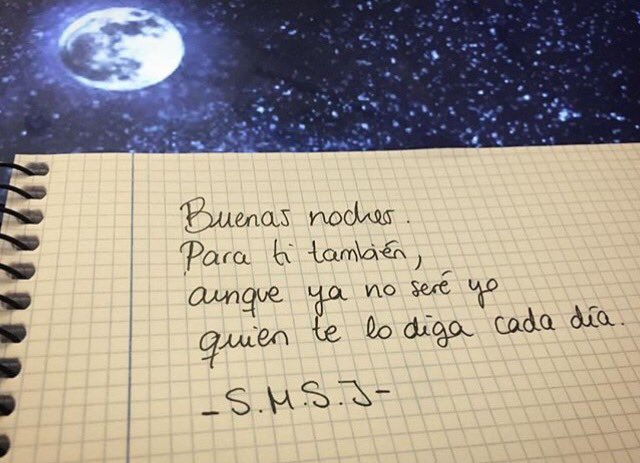 Buenas noches.
Para ti también,
aunque ya no seré yo
quien te lo diga cada día.
-S.M.S.J-